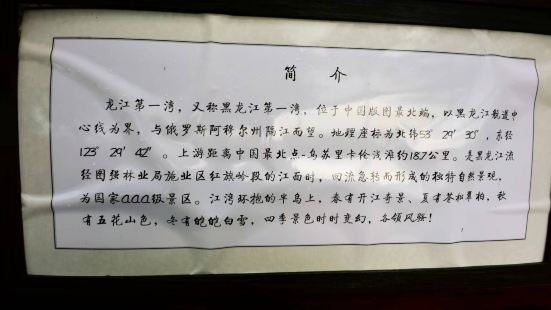 简 介
龙江第一湾，又称黑龙江第一湾，位于中国版图最北端，以黑龙江航道中
心线为界，与俄罗斯阿穆尔州隔江而望。地理座标为北纬53°29′30″，东经
123°29′42″。上游距离中国最北点-乌苏里卡伦浅滩约18.7公里。是黑龙江流
经图强林业局施业区红旗岭段的江面时，回流急转而形成的独特自然景观，
为国家AAA级景区。江湾环抱的半岛上，春有开江奇景、夏有苍松翠柏，秋
有五花山色，冬有皑皑白雪，四季景色时时变幻，各领风骚！